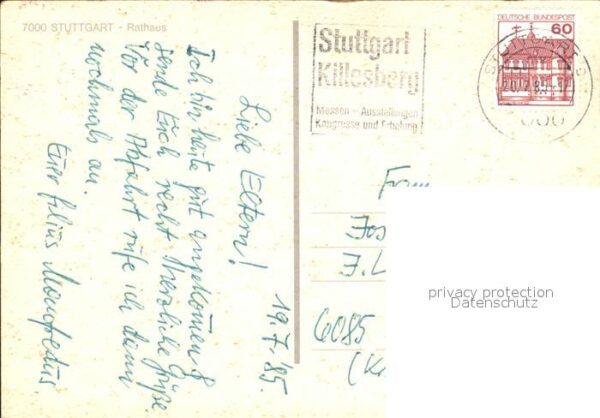 7000 STUTTGART - Rathaus
19.7.85.
Liebe Eltern!
Ich bin heute gut angekommen &
sende Euch recht herzliche Grüße.
Vor der Abfahrt rufe ich dann
nochmals an.
Euer filius Manfredus.
Stuttgart
Killesberg
Messen - Ausstellungen
Kongresse und Erholung
DEUTSCHE BUNDESPOST
60
STUTTGART
6085
privacy protection
Datenschutz